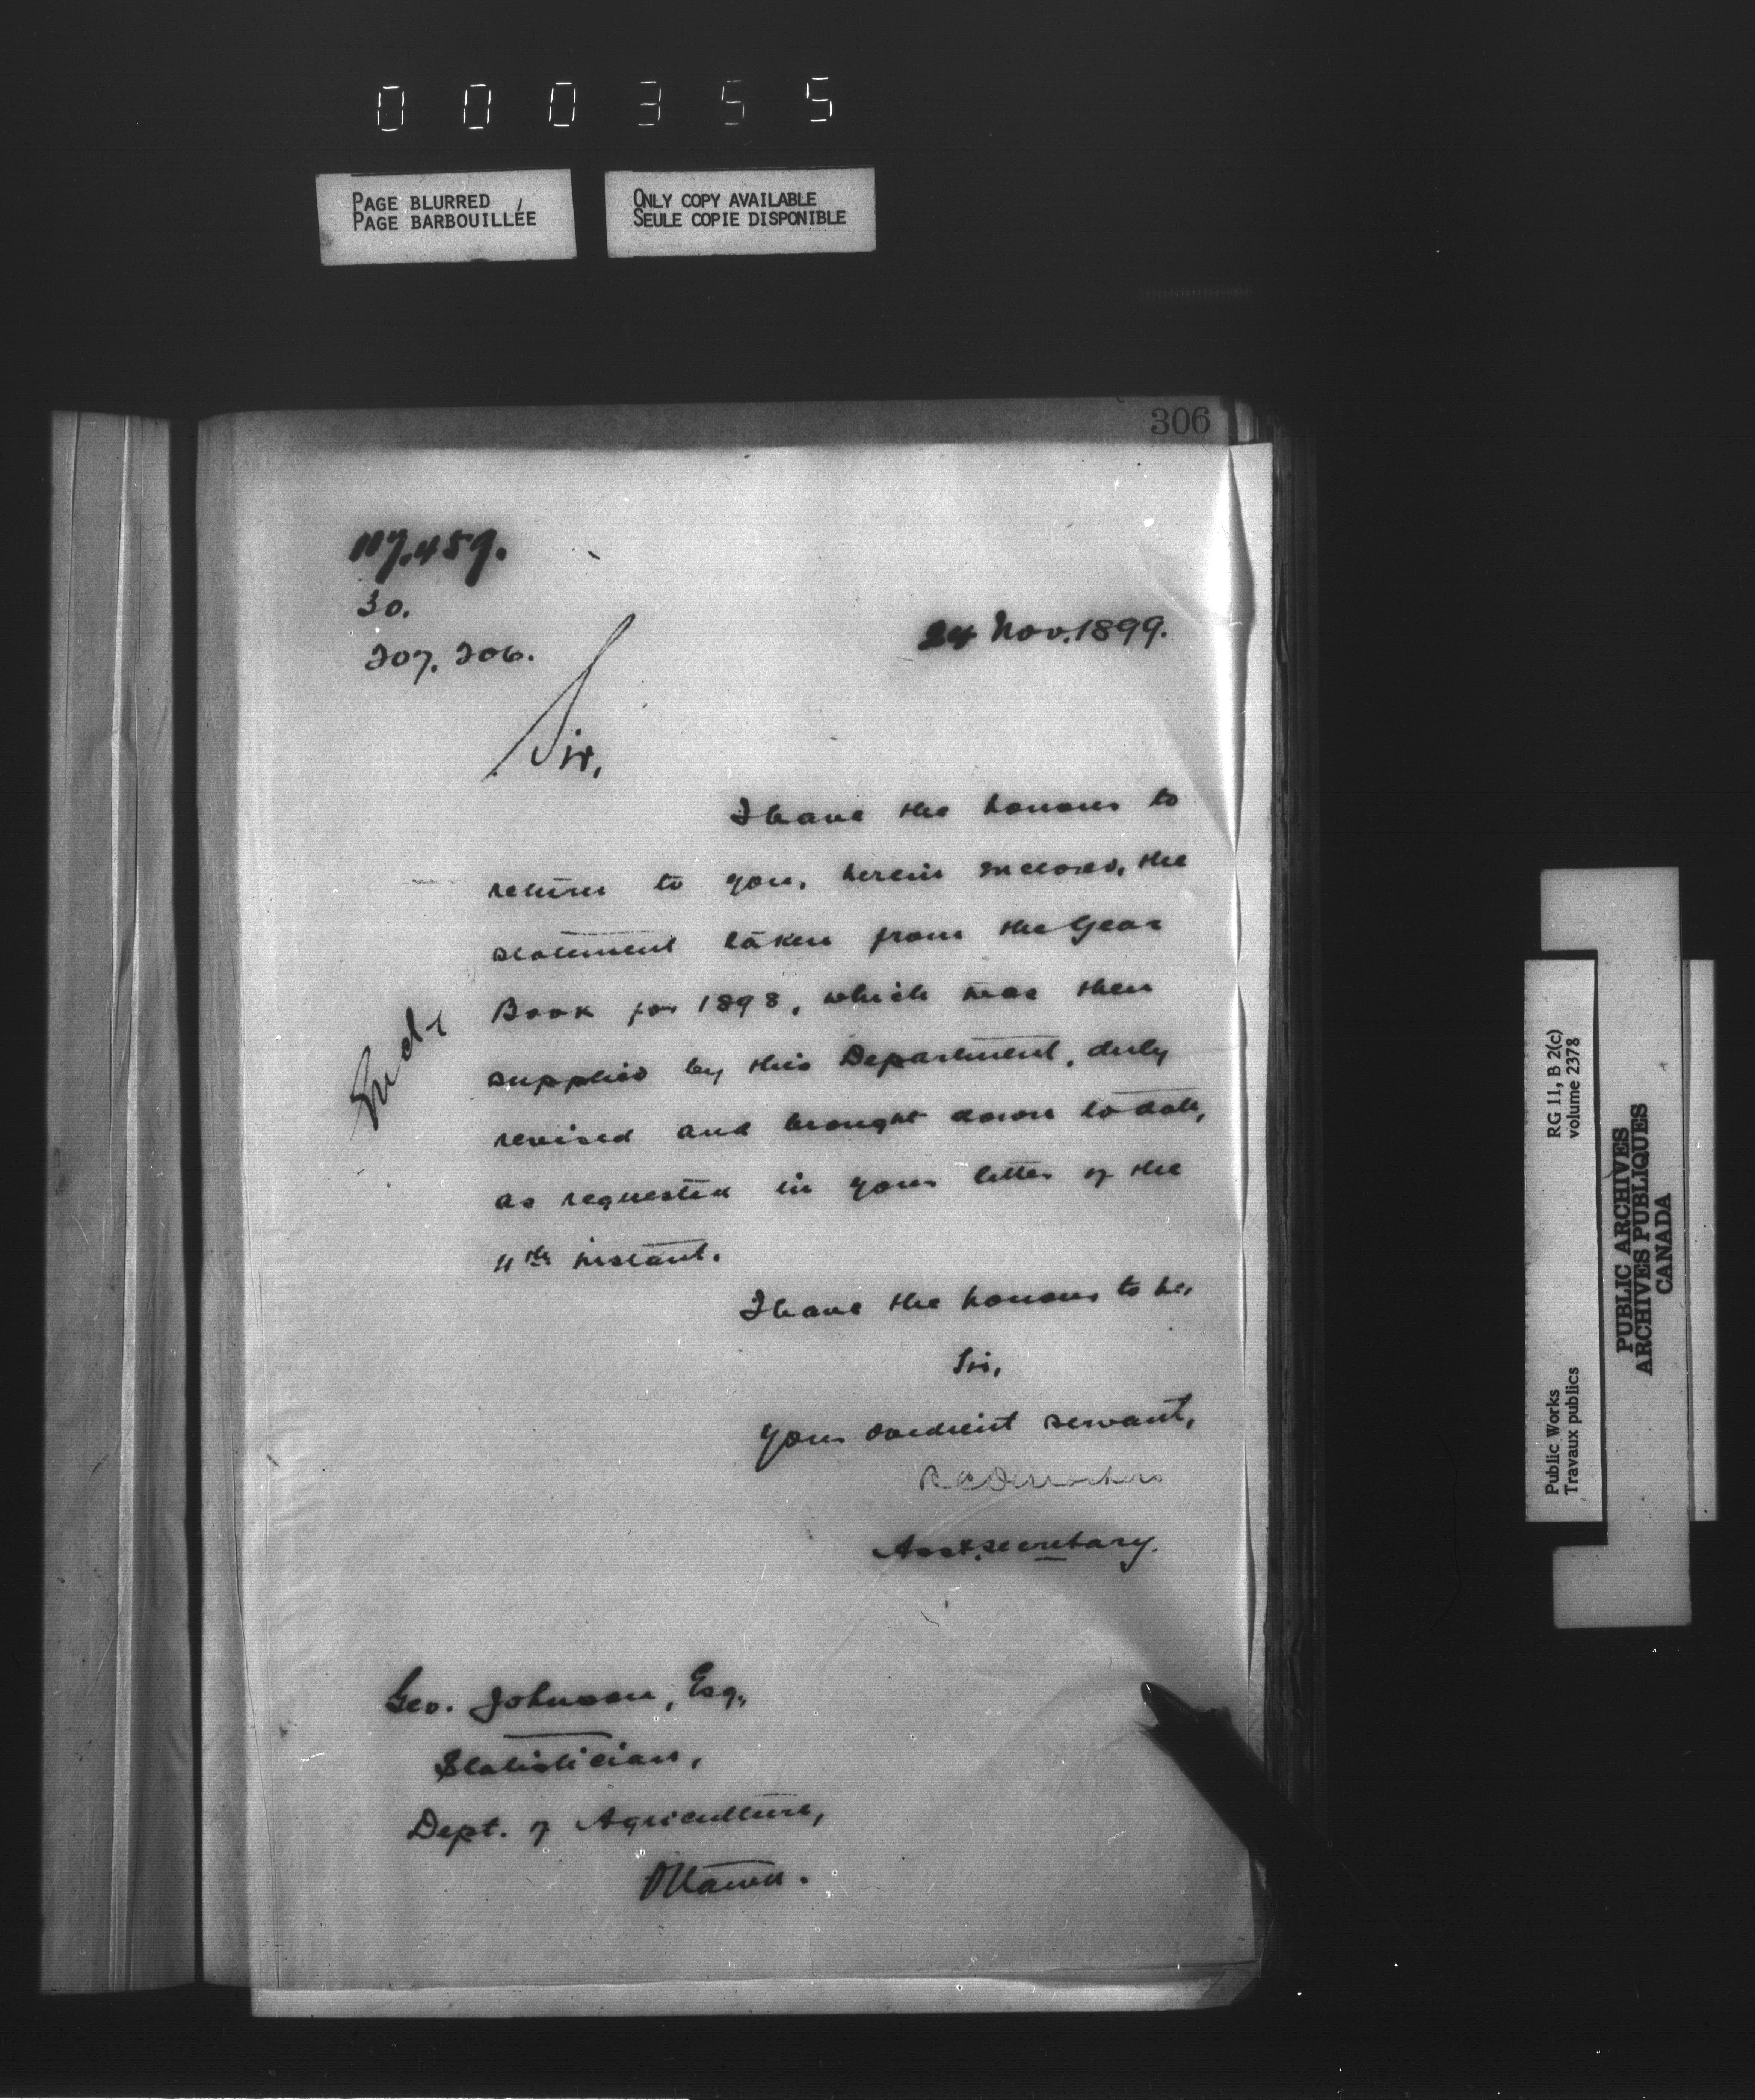 000355
PAGE BLURRED
PAGE BARBOUILLÉE
ONLY COPY AVAILABLE
SEULE COPIE DISPONIBLE
306
117.459.
30.
207. 206.
24 Nov. 1899.
Sir,
I have the honour to
return to you, herein enclosed, the
statement taken from the Year
Book for 1898, which was then
supplied by this Department, duly
revised and brought down to date,
as requested in your letter of the
11th instant.
Encl
I have the honour to be,
Sir,
Your obedient servant,
Asst. Secretary.
Geo. Johnson, Esq.,
Statistician,
Dept. of Agriculture,
Ottawa.
Public Works
Travaux publics
RG 11, B 2(c)
volume 2378
PUBLIC ARCHIVES
ARCHIVES PUBLIQUES
CANADA